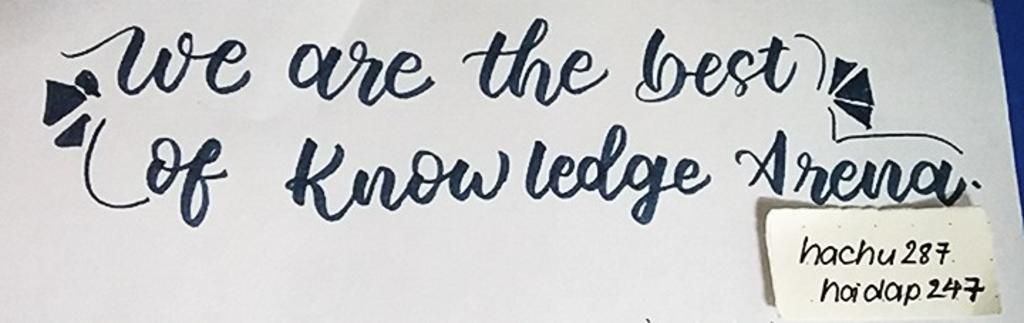 We are the best
of Knowledge Arena.
hachu287
hoidap247